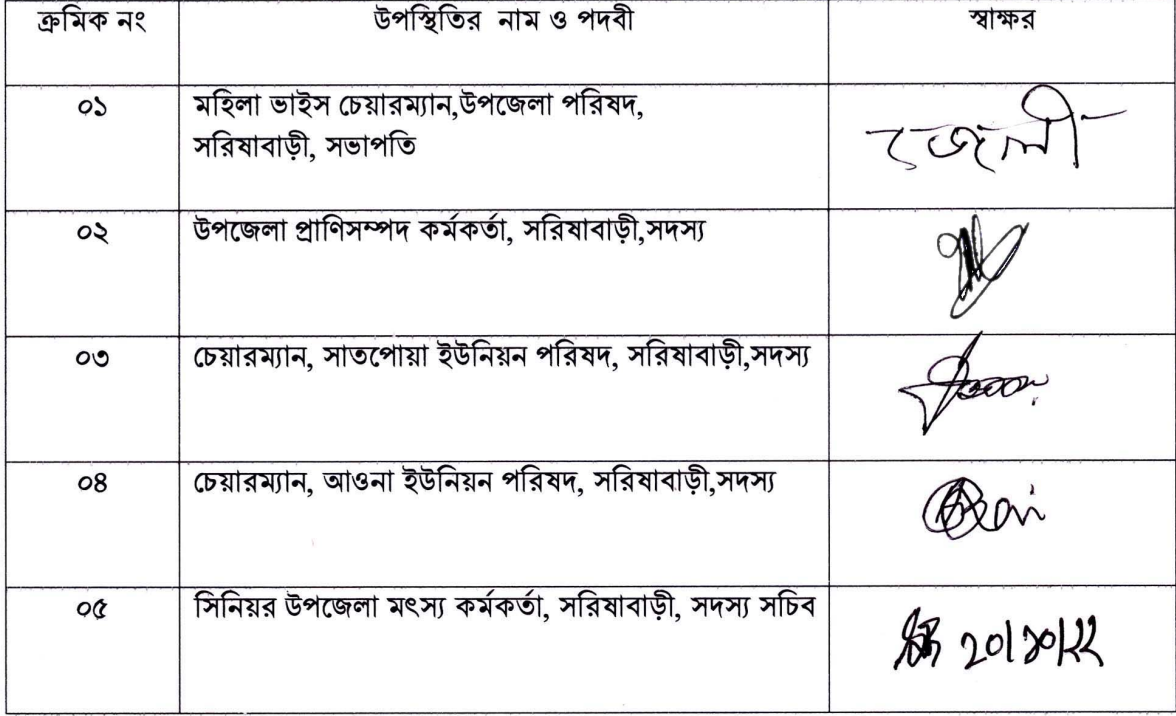 ক্রমিক নং উপস্থিতির নাম ও পদবী স্বাক্ষর
০১ মহিলা ভাইস চেয়ারম্যান,উপজেলা পরিষদ,
সরিষাবাড়ী, সভাপতি জেলী
০২ উপজেলা প্রাণিসম্পদ কর্মকর্তা, সরিষাবাড়ী,সদস্য
০৩ চেয়ারম্যান, সাতপোয়া ইউনিয়ন পরিষদ, সরিষাবাড়ী,সদস্য
০৪ চেয়ারম্যান, আওনা ইউনিয়ন পরিষদ, সরিষাবাড়ী,সদস্য
০৫ সিনিয়র উপজেলা মৎস্য কর্মকর্তা, সরিষাবাড়ী, সদস্য সচিব ২০/১০/২২